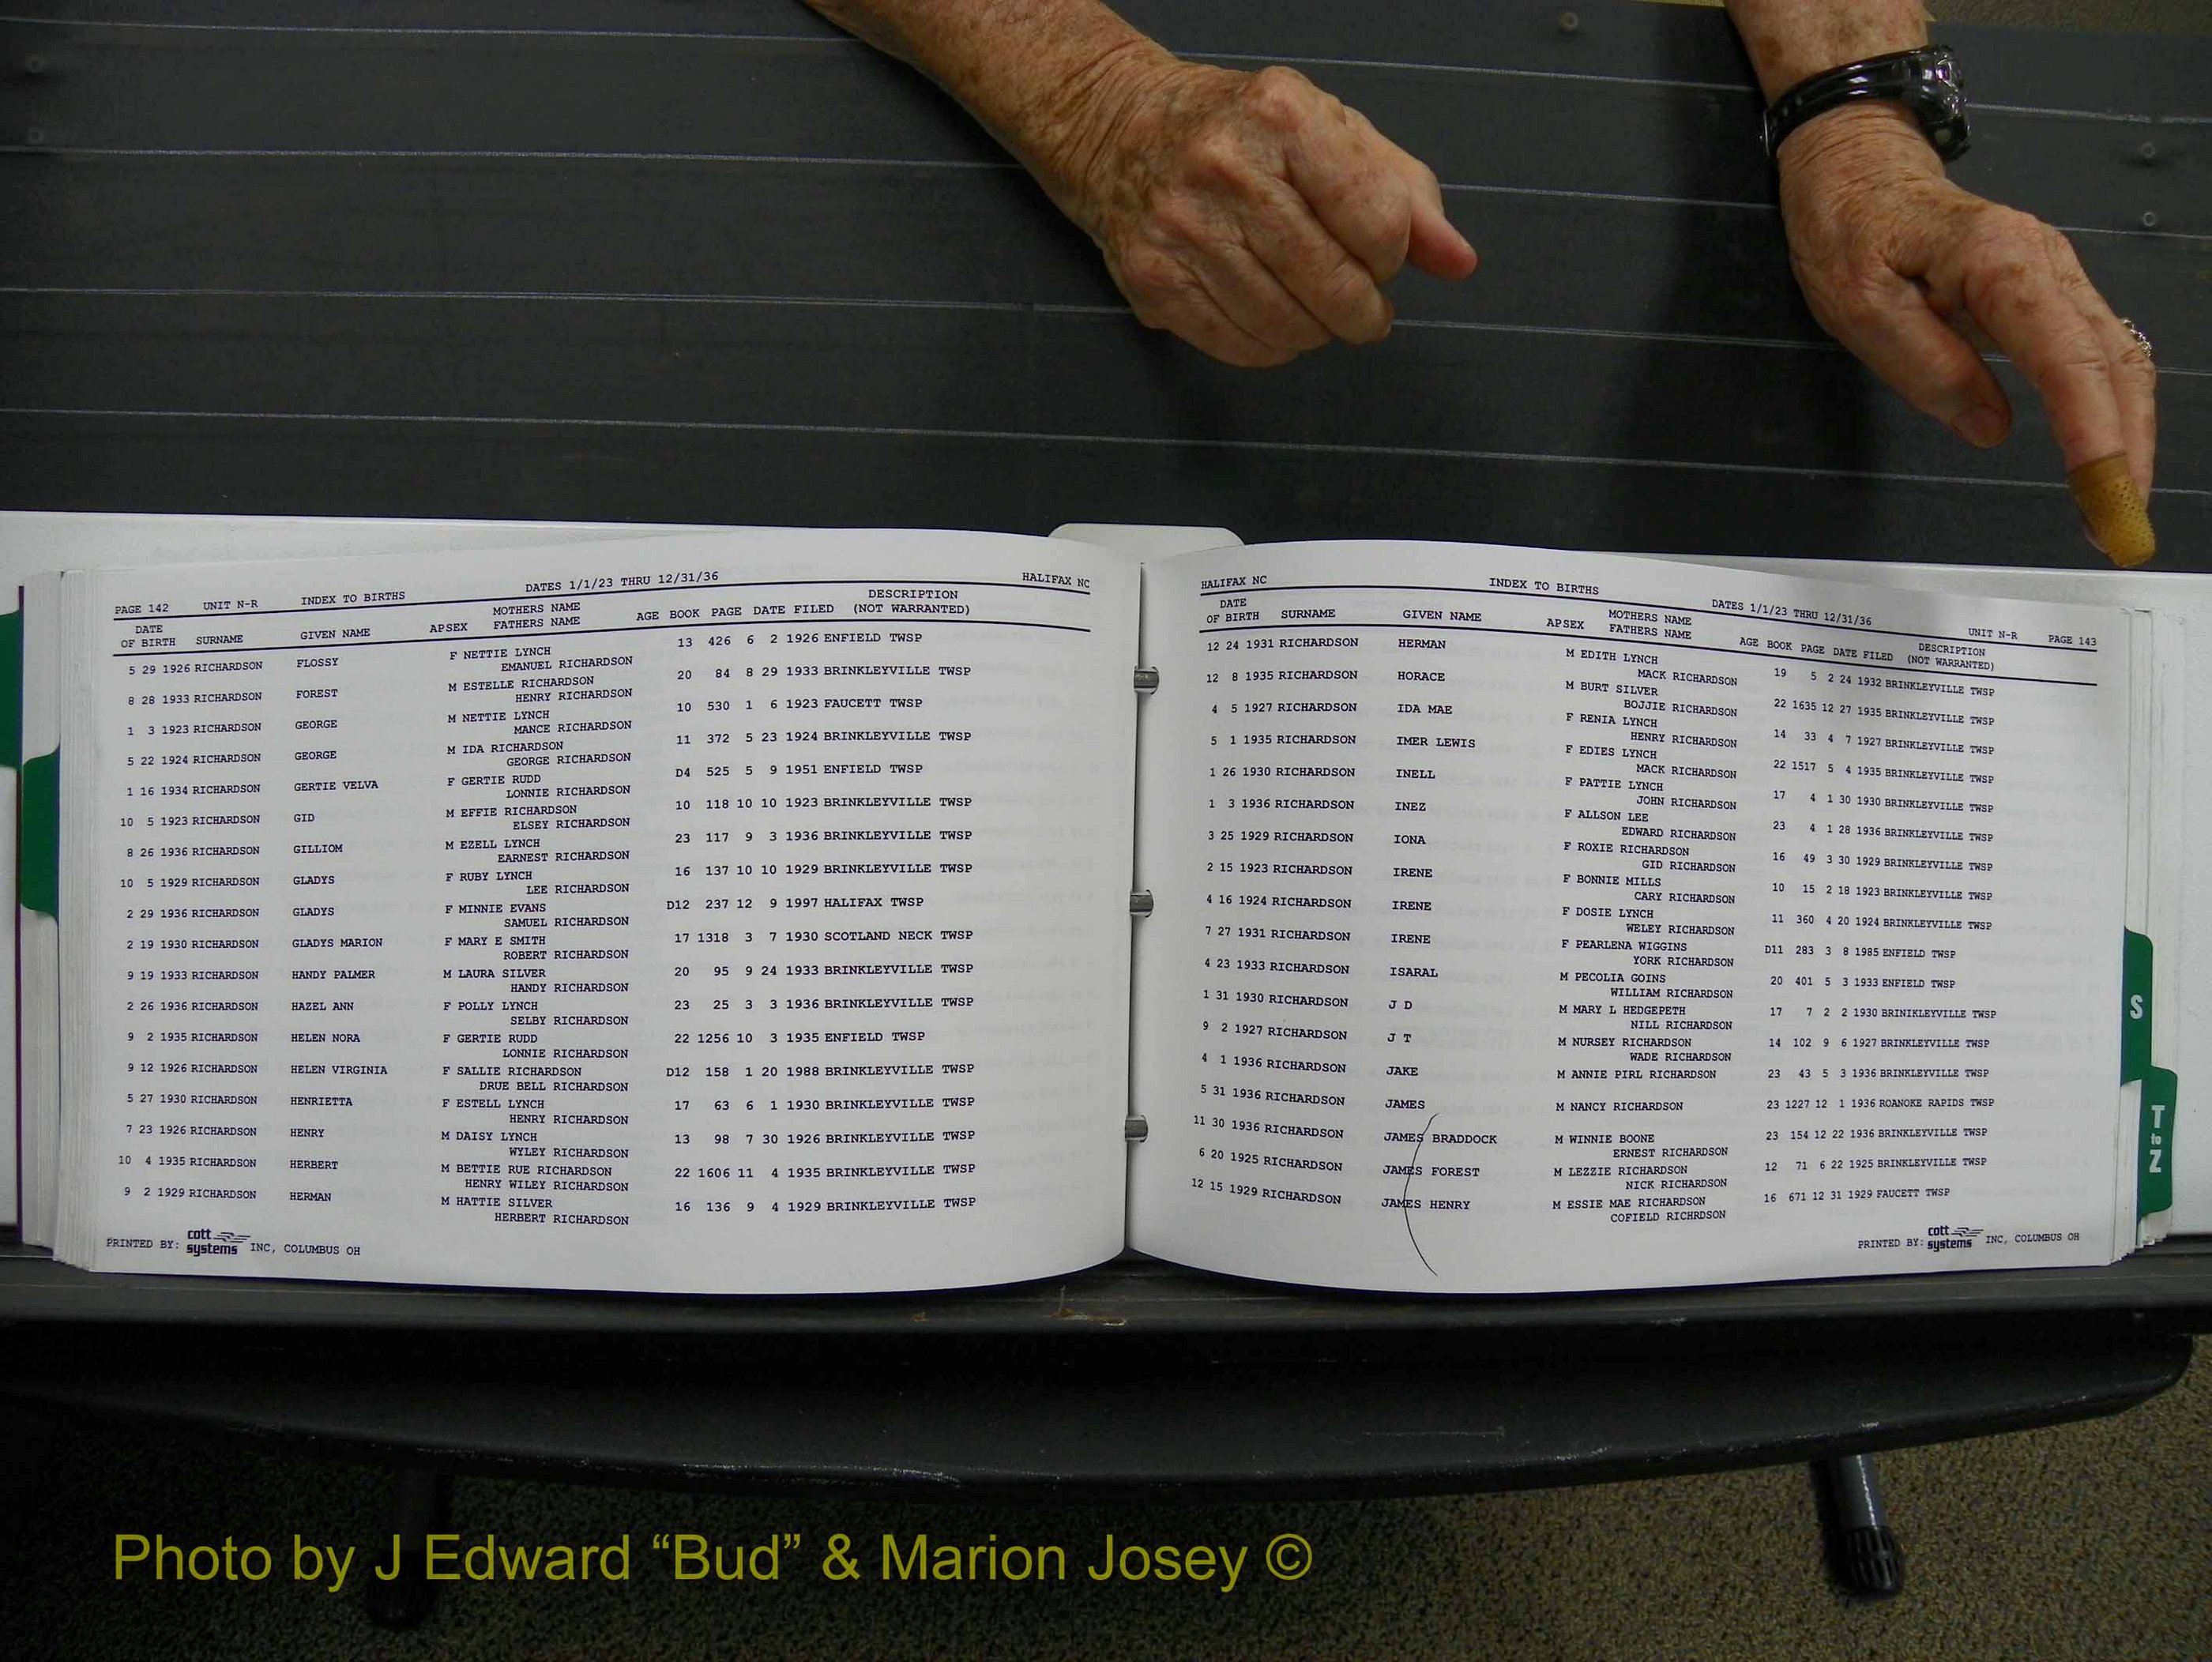 PAGE 142 UNIT N-R INDEX TO BIRTHS DATES 1/1/23 THRU 12/31/36 HALIFAX NC
DATE OF BIRTH SURNAME GIVEN NAME APSEX MOTHERS NAME FATHERS NAME AGE BOOK PAGE DATE FILED DESCRIPTION (NOT WARRANTED)
5 29 1926 RICHARDSON FLOSSY F NETTIE LYNCH 13 426 6 2 1926 ENFIELD TWSP
EMANUEL RICHARDSON
8 28 1933 RICHARDSON FOREST M ESTELLE RICHARDSON 20 84 8 29 1933 BRINKLEYVILLE TWSP
HENRY RICHARDSON
1 3 1923 RICHARDSON GEORGE M NETTIE LYNCH 10 530 1 6 1923 FAUCETT TWSP
MANCE RICHARDSON
5 22 1924 RICHARDSON GEORGE M IDA RICHARDSON 11 372 5 23 1924 BRINKLEYVILLE TWSP
GEORGE RICHARDSON
1 16 1934 RICHARDSON GERTIE VELVA F GERTIE RUDD D4 525 5 9 1951 ENFIELD TWSP
LONNIE RICHARDSON
10 5 1923 RICHARDSON GID M EFFIE RICHARDSON 10 118 10 10 1923 BRINKLEYVILLE TWSP
ELSEY RICHARDSON
8 26 1936 RICHARDSON GILLIOM M EZELL LYNCH 23 117 9 3 1936 BRINKLEYVILLE TWSP
EARNEST RICHARDSON
10 5 1929 RICHARDSON GLADYS F RUBY LYNCH 16 137 10 10 1929 BRINKLEYVILLE TWSP
LEE RICHARDSON
2 29 1936 RICHARDSON GLADYS F MINNIE EVANS D12 237 12 9 1997 HALIFAX TWSP
SAMUEL RICHARDSON
2 19 1930 RICHARDSON GLADYS MARION F MARY E SMITH 17 1318 3 7 1930 SCOTLAND NECK TWSP
ROBERT RICHARDSON
9 19 1933 RICHARDSON HANDY PALMER M LAURA SILVER 20 95 9 24 1933 BRINKLEYVILLE TWSP
HANDY RICHARDSON
2 26 1936 RICHARDSON HAZEL ANN F POLLY LYNCH 23 25 3 3 1936 BRINKLEYVILLE TWSP
SELBY RICHARDSON
9 2 1935 RICHARDSON HELEN NORA F GERTIE RUDD 22 1256 10 3 1935 ENFIELD TWSP
LONNIE RICHARDSON
9 12 1926 RICHARDSON HELEN VIRGINIA F SALLIE RICHARDSON D12 158 1 20 1988 BRINKLEYVILLE TWSP
DRUE BELL RICHARDSON
5 27 1930 RICHARDSON HENRIETTA F ESTELL LYNCH 17 63 6 1 1930 BRINKLEYVILLE TWSP
HENRY RICHARDSON
7 23 1926 RICHARDSON HENRY M DAISY LYNCH 13 98 7 30 1926 BRINKLEYVILLE TWSP
WYLEY RICHARDSON
10 4 1935 RICHARDSON HERBERT M BETTIE RUE RICHARDSON 22 1606 11 4 1935 BRINKLEYVILLE TWSP
HENRY WILEY RICHARDSON
9 2 1929 RICHARDSON HERMAN M HATTIE SILVER 16 136 9 4 1929 BRINKLEYVILLE TWSP
HERBERT RICHARDSON
PRINTED BY: cott systems INC, COLUMBUS OH
HALIFAX NC INDEX TO BIRTHS DATES 1/1/23 THRU 12/31/36 UNIT N-R PAGE 143
DATE OF BIRTH SURNAME GIVEN NAME APSEX MOTHERS NAME FATHERS NAME AGE BOOK PAGE DATE FILED DESCRIPTION (NOT WARRANTED)
12 24 1931 RICHARDSON HERMAN M EDITH LYNCH 19 5 2 24 1932 BRINKLEYVILLE TWSP
MACK RICHARDSON
12 8 1935 RICHARDSON HORACE M BURT SILVER 22 1635 12 27 1935 BRINKLEYVILLE TWSP
BOJJIE RICHARDSON
4 5 1927 RICHARDSON IDA MAE F RENIA LYNCH 14 33 4 7 1927 BRINKLEYVILLE TWSP
HENRY RICHARDSON
5 1 1935 RICHARDSON IMER LEWIS F EDIES LYNCH 22 1517 5 4 1935 BRINKLEYVILLE TWSP
MACK RICHARDSON
1 26 1930 RICHARDSON INELL F PATTIE LYNCH 17 4 1 30 1930 BRINKLEYVILLE TWSP
JOHN RICHARDSON
1 3 1936 RICHARDSON INEZ F ALLSON LEE 23 4 1 28 1936 BRINKLEYVILLE TWSP
EDWARD RICHARDSON
3 25 1929 RICHARDSON IONA F ROXIE RICHARDSON 16 49 3 30 1929 BRINKLEYVILLE TWSP
GID RICHARDSON
2 15 1923 RICHARDSON IRENE F BONNIE MILLS 10 15 2 18 1923 BRINKLEYVILLE TWSP
CARY RICHARDSON
4 16 1924 RICHARDSON IRENE F DOSIE LYNCH 11 360 4 20 1924 BRINKLEYVILLE TWSP
WELEY RICHARDSON
7 27 1931 RICHARDSON IRENE F PEARLENA WIGGINS D11 283 3 8 1985 ENFIELD TWSP
YORK RICHARDSON
4 23 1933 RICHARDSON ISARAL M PECOLIA GOINS 20 401 5 3 1933 ENFIELD TWSP
WILLIAM RICHARDSON
1 31 1930 RICHARDSON J D M MARY L HEDGEPETH 17 7 2 2 1930 BRINIKLEYVILLE TWSP
NILL RICHARDSON
9 2 1927 RICHARDSON J T M NURSEY RICHARDSON 14 102 9 6 1927 BRINKLEYVILLE TWSP
WADE RICHARDSON
4 1 1936 RICHARDSON JAKE M ANNIE PIRL RICHARDSON 23 43 5 3 1936 BRINKLEYVILLE TWSP
5 31 1936 RICHARDSON JAMES M NANCY RICHARDSON 23 1227 12 1 1936 ROANOKE RAPIDS TWSP
11 30 1936 RICHARDSON JAMES BRADDOCK M WINNIE BOONE 23 154 12 22 1936 BRINKLEYVILLE TWSP
ERNEST RICHARDSON
6 20 1925 RICHARDSON JAMES FOREST M LEZZIE RICHARDSON 12 71 6 22 1925 BRINKLEYVILLE TWSP
NICK RICHARDSON
12 15 1929 RICHARDSON JAMES HENRY M ESSIE MAE RICHARDSON 16 671 12 31 1929 FAUCETT TWSP
COFIELD RICHRDSON
PRINTED BY: cott systems INC, COLUMBUS OH
S
T to Z
Photo by J Edward “Bud” & Marion Josey ©